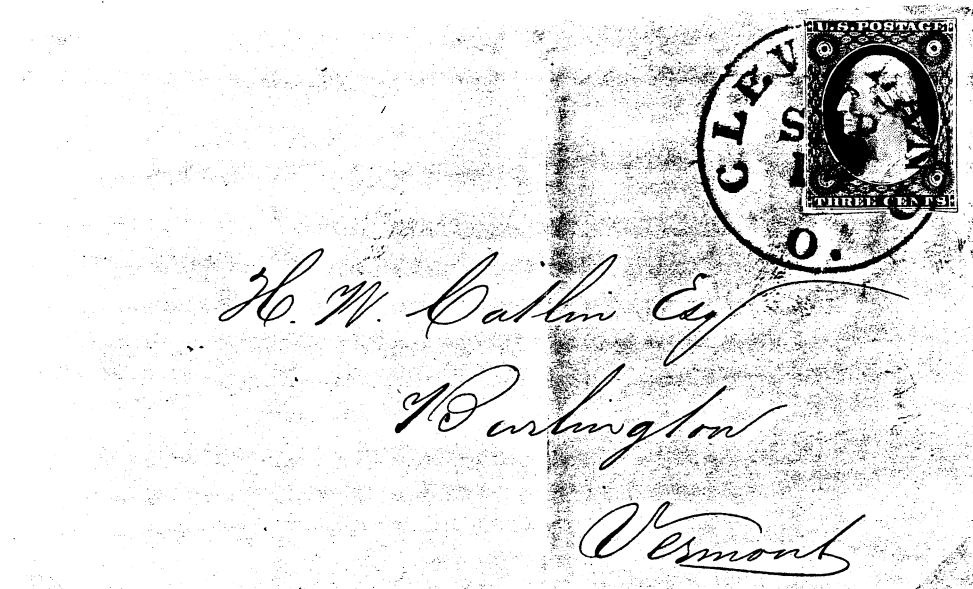 U.S. POSTAGE
THREE CENTS
CLEVELAND
SEP
O.
H. W. Catlin Esq
Burlington
Vermont